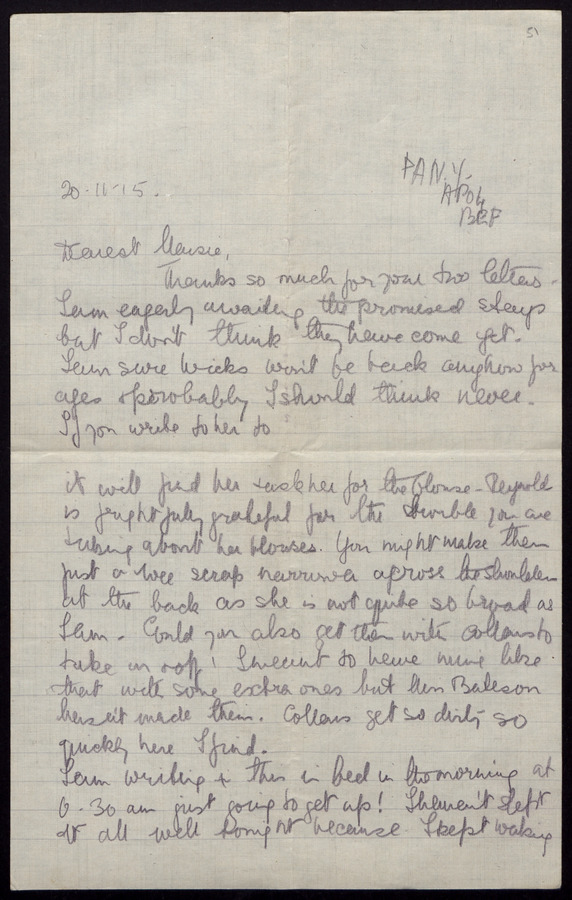 51
20-11-15.
FANY
APO4
BEF
Dearest Mousie,
Thanks so much for your two letters.
I am eagerly awaiting the promised stays
but I don't think they have come yet.
I am sure Wicks won't be back anyhow for
ages & probably I should think never.
If you write to her to
it will find her & ask her for the blouse - Reynolds
is frightfully grateful for the trouble you are
taking about her blouses. You might make them
just a wee scrap narrower across the shoulders
at the back as she is not quite so broad as
I am. Could you also get them with collars to
take on & off! I meant to have mine like
that with some extra ones but Mrs Bateson
hasn't made them. Collars get so dirty so
quickly here I find.
I am writing this in bed in the morning at
6-30 am just going to get up! I haven't slept
at all well tonight because I kept waking